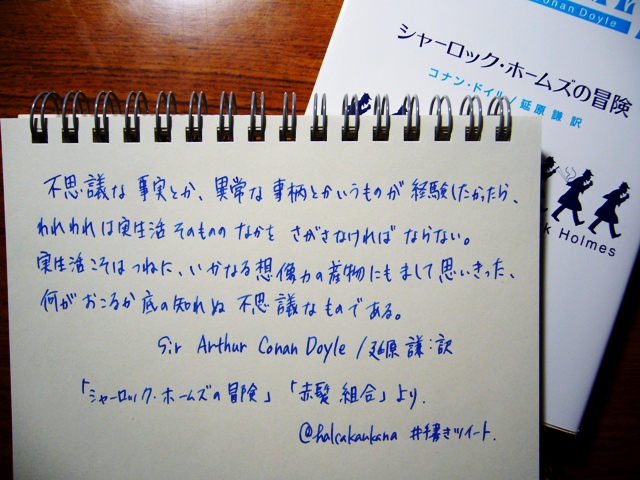 Conan Doyle
シャーロック・ホームズの冒険
コナン・ドイル/延原 謙 訳
k Holmes
不思議な事実とか、異常な事柄とかいうものが経験したかったら、
われわれは実生活そのもののなかをさがさなければならない。
実生活こそはつねに、いかなる想像力の産物にもまして思いきった、
何がおこるか底の知れぬ不思議なものである。
Sir Arthur Conan Doyle / 延原 謙:訳
「シャーロック・ホームズの冒険」「赤髪組合」より.
@halcakaukana #手書きツイート.